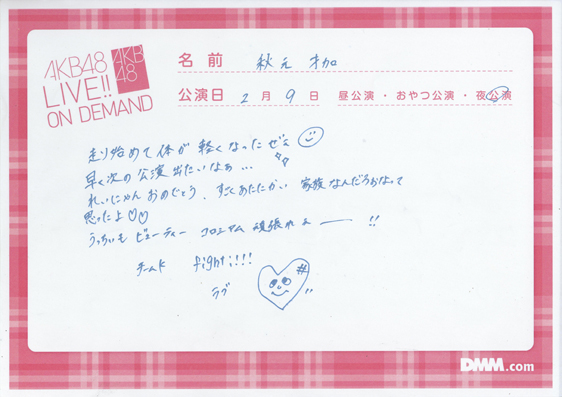 AKB48
LIVE!!
ON DEMAND
AKB
48
名前 秋元 才加
公演日 2月9日 昼公演・おやつ公演・夜公演
走り始めて体が軽くなったぜぇ
早く次の公演出たいなぁ…
れいにゃんおめでとう、すごくあたたかい家族なんだろおなって
思ったよ♡♡
うっちぃもビューティーコロシアム頑張れよー!!
チームK fight!!!!
ラブ
DMM.com